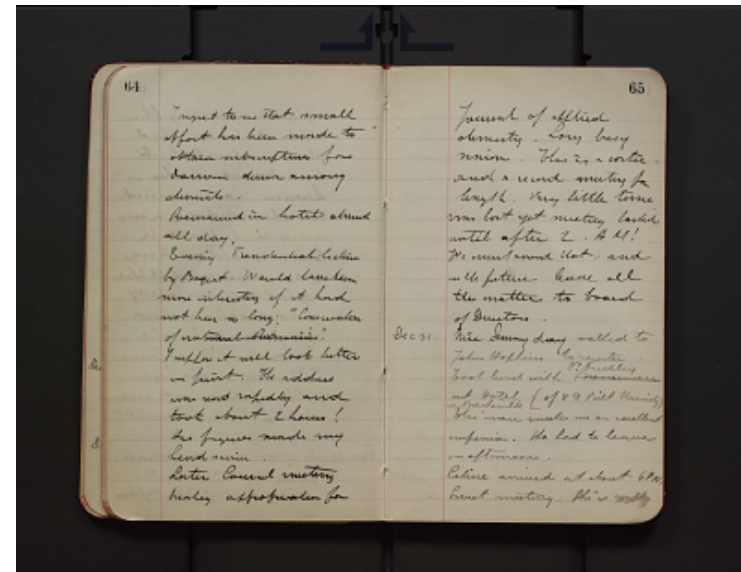 64
regret to me that small
effort has been made to
obtain subscriptions from
among
chemists.
Remained in hotel almost
all day.
Evening Presidential lecture
by Bogert. Would have been
more interesting if it had
not been so long: "Conservation
of natural
I suppose it will look better
in print. The address
was read rapidly and
took about 2 hours!
his figures made my
head swim.
Later Council meeting
for
65
Journal of applied
chemistry. Long busy
session. This is a
and a record meeting for
length. Very little time
was lost yet meeting lasted
until after 2. A.M!
We must avoid that, and
in the future leave all
the matter to board
of Directors.
Dec 31. Nice Sunny day walked to
John Hopkins
Took lunch with
at Hotel (of
This man makes me an excellent
He had to leave
in afternoon.
Celine arrived at about 6 P.M.
meeting. She is